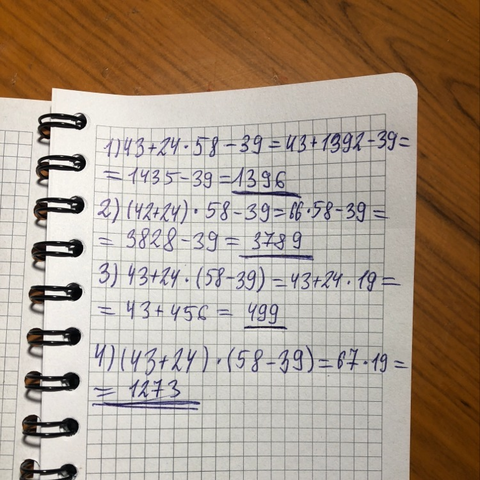 1) 43+24·58-39=43+1392-39=
=1435-39=1396
2) (42+24)·58-39=66·58-39=
=3828-39=3789
3) 43+24·(58-39)=43+24·19=
=43+456=499
4) (43+24)·(58-39)=67·19=
=1273